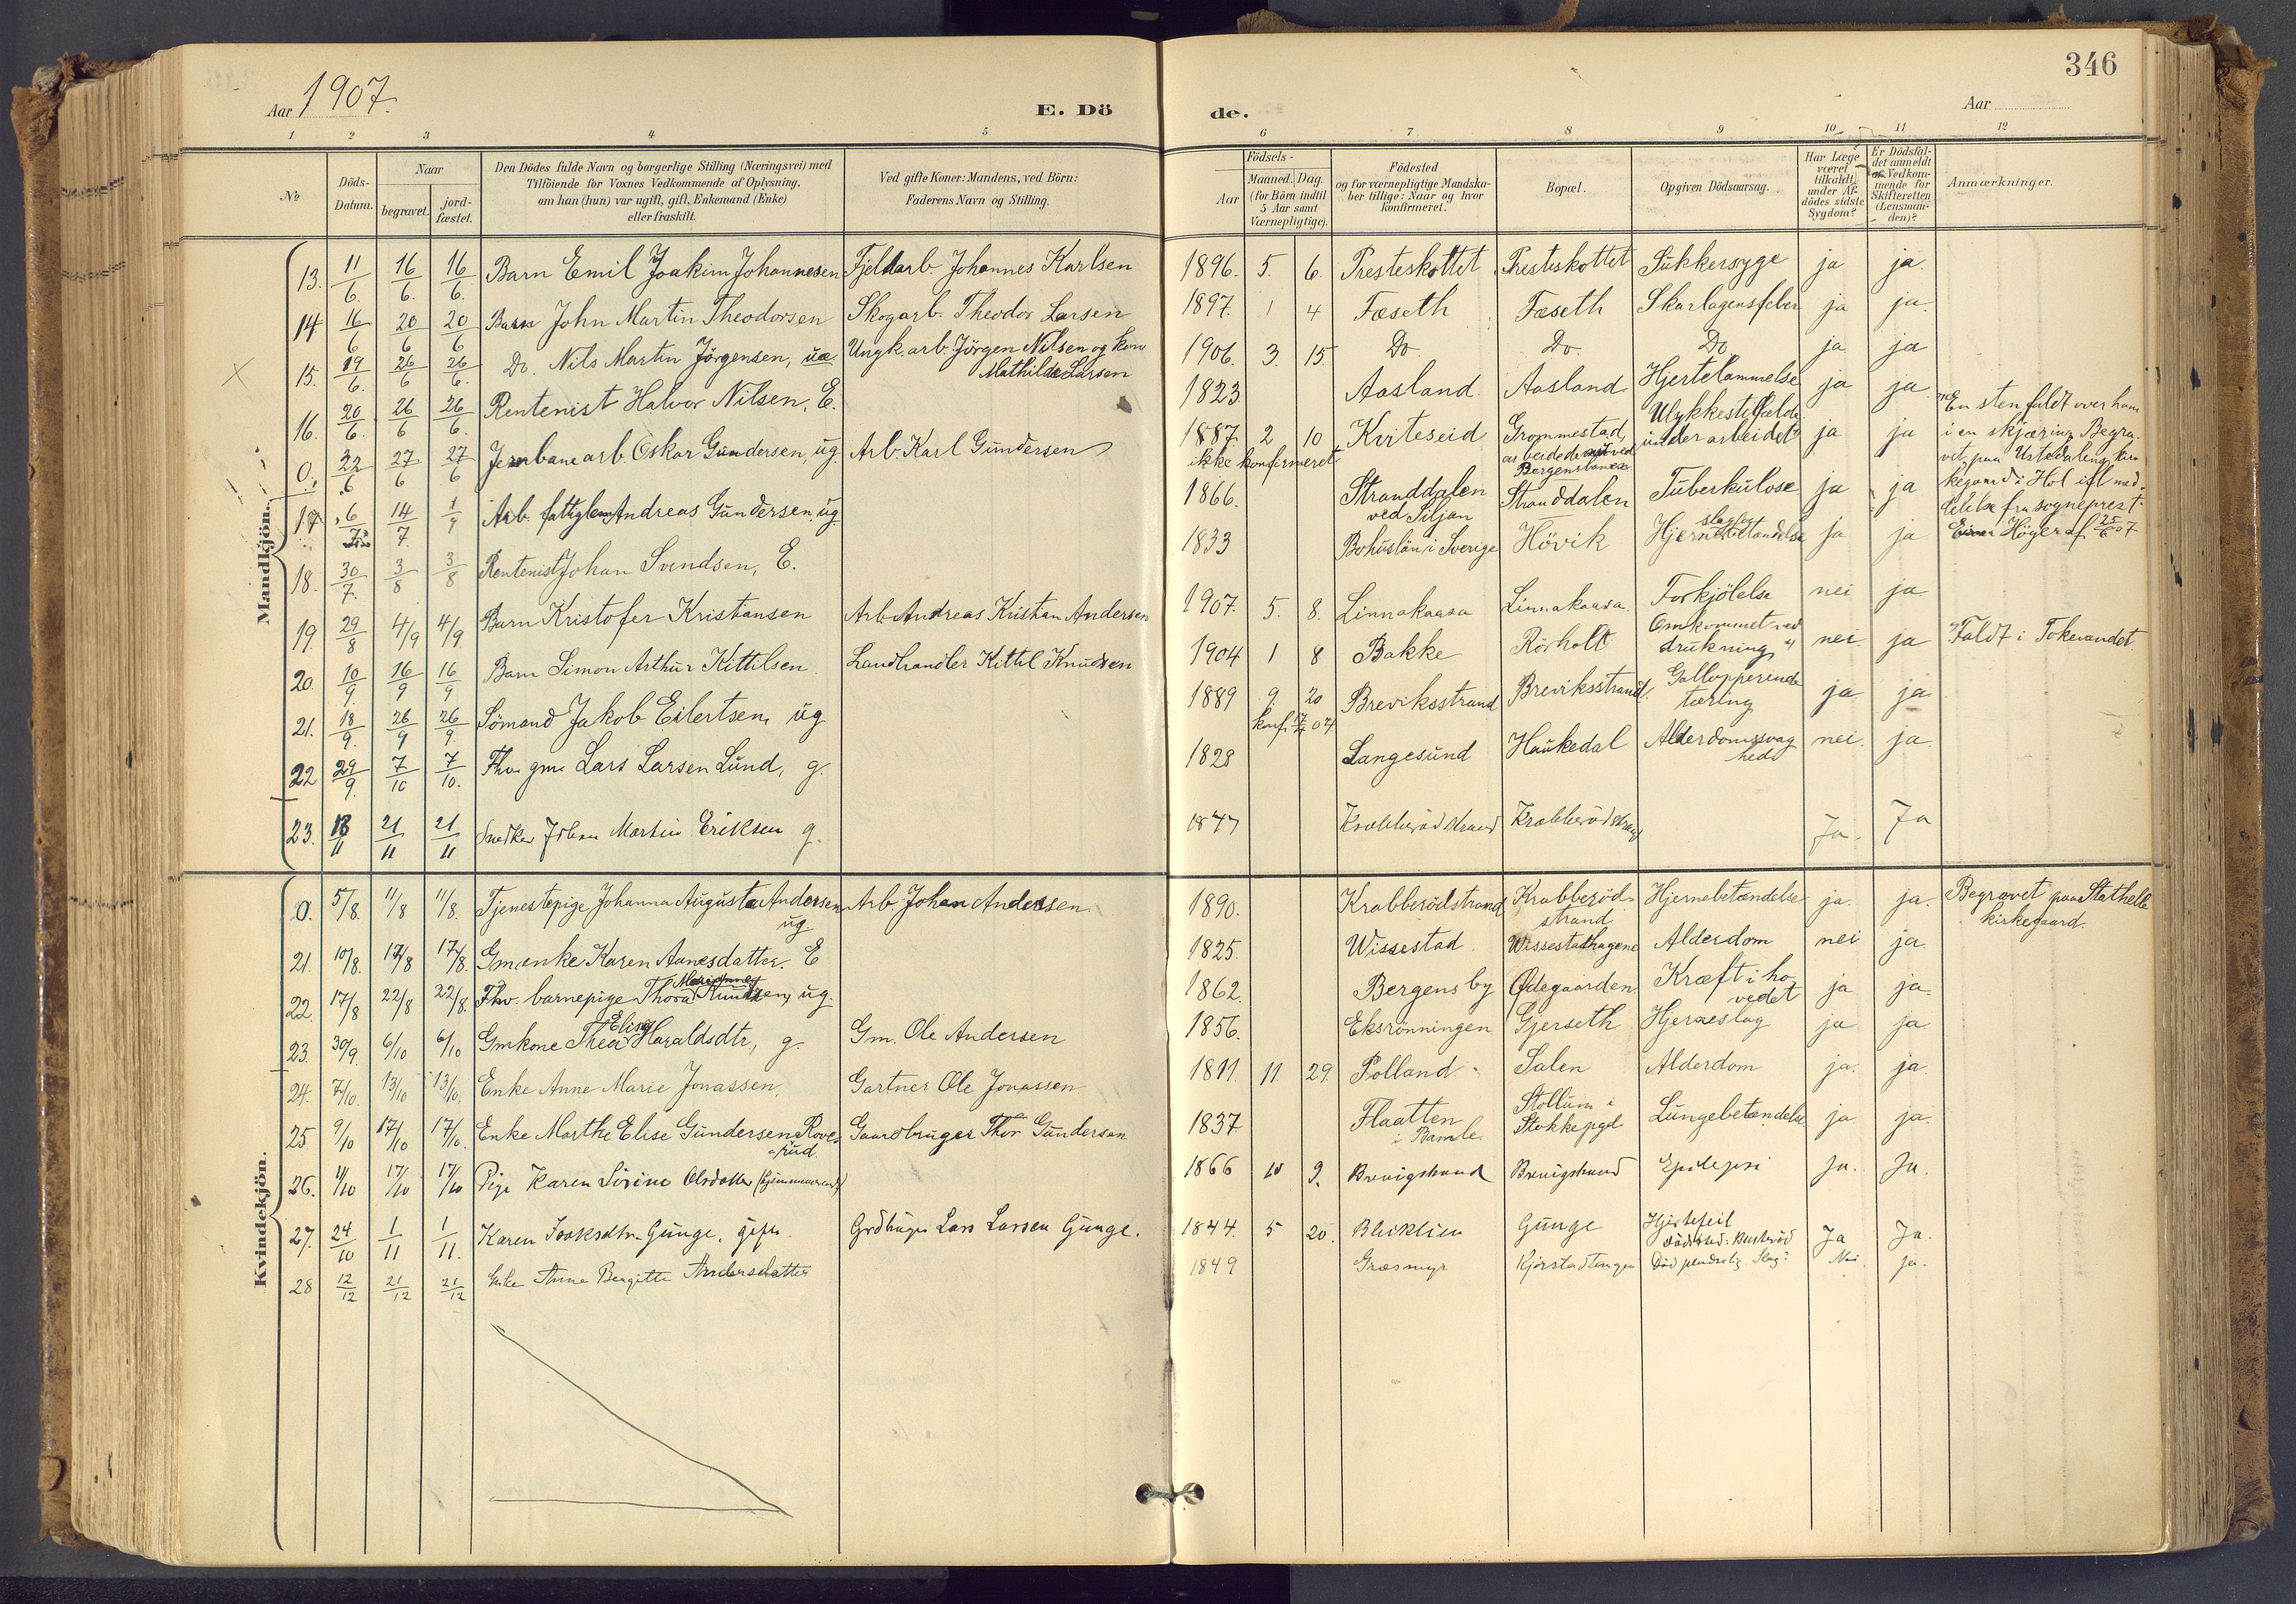 346
Aar 1907.
E. Dö
de.
Aar
1 2 3 4 5 6 7 8 9 10 11 12
No
Döds-Datum.
Naar
begravet.
jord-fæstet.
Den Dödes fulde Navn og borgerlige Stilling (Næringsvei) med
Tilföiende for Voxnes Vedkommende af Oplysning,
om han (hun) var ugift, gift, Enkemand (Enke)
eller fraskilt.
Ved gifte Koner: Mandens, ved Börn:
Faderens Navn og Stilling.
Födsels-
Aar
Maaned. Dag.
(for Börn indtil
5 Aar samt
Værnepligtige).
Födested
og for værnepligtige Mandska-
ber tillige: Naar og hvor
konfirmeret.
Bopæl.
Opgiven Dödsaarsag.
Har Læge
været
tilkaldt
under Af-
dödes sidste
Sygdom?
Er Dödsfal-
det anmeldt
af Vedkom-
mende for
Skifteretten
(Lensman-
den)?
Anmærkninger.
Mandkjön.
13. 11/6. 16/6. 16/6. Barn Emil Joakim Johannesen Fjeldarb. Johannes Karlsen 1896. 5. 6. Presteskottet Presteskottet Sukkersyge ja ja
14 16/6 20/6 20/6 Barn John Martin Theodorsen Skogarb. Theodor Larsen 1897. 1 4 Fæseth Fæseth Skarlagensfeber ja ja.
15. 19/6. 26/6 26/6. Do. Nils Martin Jörgensen, uæ. Ungk. arb. Jörgen Nilsen og Mathilde Larsen 1906. 3 15. Do Do. Do ja ja
16. 20/6. 26/6 26/6. Rentenist Halvor Nilsen, E. 1823 Aasland Aasland Hjertelammelse ja ja
0. 22/6 27/6 27/6 Jernbanearb. Oskar Gundersen, ug. Arb. Karl Gundersen 1887 2 10 Kviteseid Grommestad, arbeidede ved Bergensbanen Ulykkestilfælde under arbeidet ja ja
ikke konfirmeret
En sten faldt over ham
i en skjæring. Begra-
vet paa Ustedalens kir-
kegaard i Hol ifl. med-
delelse fra sogneprest
Höger af 25/6 07
17 6/7 14/7 1/9 Arb. fattiglem Andreas Gundersen, ug. 1866. Stranddalen ved Siljan Stranddalen Tuberkulose ja ja
18. 30/7. 3/8 3/8 Rentenist Johan Svendsen, E. 1833 Bohuslän i Sverige Hövik ja ja
19. 29/8 4/9 4/9. Barn Kristofer Kristansen Arb. Andreas Kristian Andersen 1907. 5. 8. Linnakaasa Linnakaasa. Forkjölelse nei ja
20. 10/9 16/9 16/9 Barn Simon Arthur Kittilsen Landhandler Kittil Knudsen 1904 1 8 Bakke Rörholt Omkommet ved drukning nei ja Faldt i Tokevandet
21. 18/9. 26/9 26/9. Sömand Jakob Eilertsen, ug 1889 9. 20 Breviksstrand Breviksstrand. Gallopperende tæring ja ja
22 29/9. 7/10 7/10. Fhv. gm. Lars Larsen Lund, g. 1828 Langesund Haukedal Alderdomssvaghed nei. ja
23. 13/11 21/11 21/11 Snedker Johan Martin Eriksen g. 1877 Krabberödstrand Krabberödstrand Ja. Ja
Kvindekjön.
0. 5/8. 11/8 11/8. Tjenestepige Johanna Augusta Andersen ug Arb. Johan Andersen 1890. Krabberödstrand Krabberöd-strand Hjernebetændelse ja. ja. Begravet paa Stathelle kirkegaard.
21. 10/8. 17/8 17/8. Gm.enke Karen Aanesdatter. E 1825. Wissestad Wissestadhagene Alderdom nei ja.
22. 17/8 22/8 22/8. Fhv. barnepige Thora Knudsen, ug. 1862. Bergens by Ødegaarden Kræft i hovedet ja ja
23 30/9. 6/10 6/10 Gmkone Thea Elise Haraldsdtr., g. Gm. Ole Andersen 1856. Eksrönningen Gjerseth Hjerneslag ja ja
24. 7/10. 13/10 13/10. Enke Anne Marie Jonassen, Gartner Ole Jonassen 1811. 11. 29. Polland Salen Alderdom ja. ja.
25 9/10 17/10 17/10. Enke Marthe Elise Gundersen Rove-rud. Gaardbruger Thor Gundersen 1837 Flaatten i Bamle. Stokke pgd. Lungebetændelse ja ja.
26. 11/10 17/10 17/10 Pige Karen Sörine Olsdatter (hjemmeværende) 1866 10 9. Brevigstrand Brevigstrand Epilepsi Ja. Ja.
27. 24/10 1/11 1/11. Karen Isaksdtr. Gunge, gift. Grdbruger Lars Larsen Gunge. 1844. 5 20. Bliklien Gunge Hjertefeil Ja Ja.
28 12/12 21/12 21/12 Enke Anne Bergitte Andersdatter 1849 Græsmyr Kjörstadtangen Död pludselig. Slag? Nei ja.